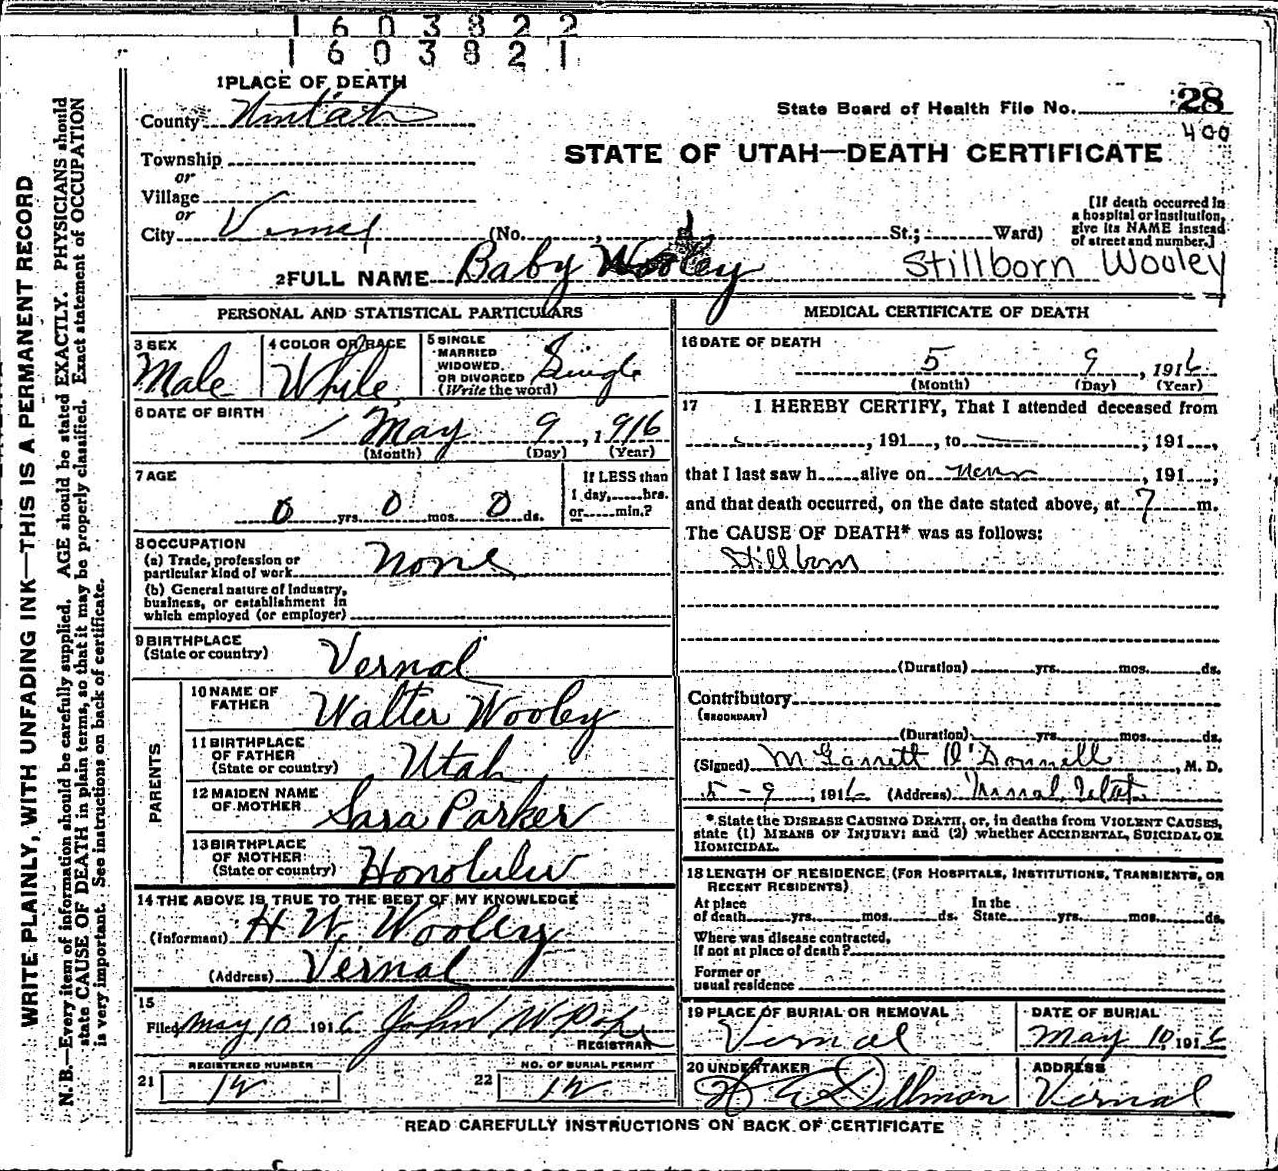 1603822
1603821
1 PLACE OF DEATH
County Uintah
State Board of Health File No. 28
400
STATE OF UTAH—DEATH CERTIFICATE
Township
or
Village
or
City Vernal (No. , St.; Ward)
[If death occurred in
a hospital or institution,
give its NAME instead
of street and number.]
2 FULL NAME Baby Wooley
Stillborn Wooley
PERSONAL AND STATISTICAL PARTICULARS
3 SEX
Male
4 COLOR OR RACE
White
5 SINGLE
MARRIED
WIDOWED
OR DIVORCED
(Write the word)
Single
6 DATE OF BIRTH
May 9, 1916
(Month) (Day) (Year)
7 AGE
0 yrs. 0 mos. 0 ds.
If LESS than
1 day, hrs.
or min.?
8 OCCUPATION
(a) Trade, profession or
particular kind of work None
(b) General nature of Industry,
business, or establishment in
which employed (or employer)
9 BIRTHPLACE
(State or country) Vernal
PARENTS
10 NAME OF
FATHER Walter Wooley
11 BIRTHPLACE
OF FATHER
(State or country) Utah
12 MAIDEN NAME
OF MOTHER Sara Parker
13 BIRTHPLACE
OF MOTHER
(State or country) Honolulu
14 THE ABOVE IS TRUE TO THE BEST OF MY KNOWLEDGE
(Informant) H W. Wooley
(Address) Vernal
15
Filed May 10 1916 John W
REGISTRAR
REGISTERED NUMBER
21 12
NO. OF BURIAL PERMIT
22 12
MEDICAL CERTIFICATE OF DEATH
16 DATE OF DEATH
5 9, 1916
(Month) (Day) (Year)
17 I HEREBY CERTIFY, That I attended deceased from
, 191 , to , 191 ,
that I last saw h alive on never , 191 ;
and that death occurred, on the date stated above, at 7 m.
The CAUSE OF DEATH* was as follows:
Stillborn
(Duration) yrs. mos. ds.
Contributory
(SECONDARY)
(Duration) yrs. mos. ds.
(Signed) M Garrett O'Donnell, M. D.
5-9, 1916 (Address) Vernal, Utah
*State the DISEASE CAUSING DEATH, or, in deaths from VIOLENT CAUSES,
state (1) MEANS OF INJURY; and (2) whether ACCIDENTAL, SUICIDAL OR
HOMICIDAL.
18 LENGTH OF RESIDENCE (FOR HOSPITALS, INSTITUTIONS, TRANSIENTS, OR
RECENT RESIDENTS)
At place In the
of death yrs. mos. ds. State yrs. mos. ds.
Where was disease contracted,
if not at place of death?
Former or
usual residence
19 PLACE OF BURIAL OR REMOVAL
Vernal
DATE OF BURIAL
May 10, 1916
20 UNDERTAKER
Dillman
ADDRESS
Vernal
READ CAREFULLY INSTRUCTIONS ON BACK OF CERTIFICATE
WRITE PLAINLY, WITH UNFADING INK—THIS IS A PERMANENT RECORD
N. B.—Every item of information should be carefully supplied. AGE should be stated EXACTLY. PHYSICIANS should
state CAUSE OF DEATH in plain terms, so that it may be properly classified. Exact statement of OCCUPATION
is very important. See instructions on back of certificate.